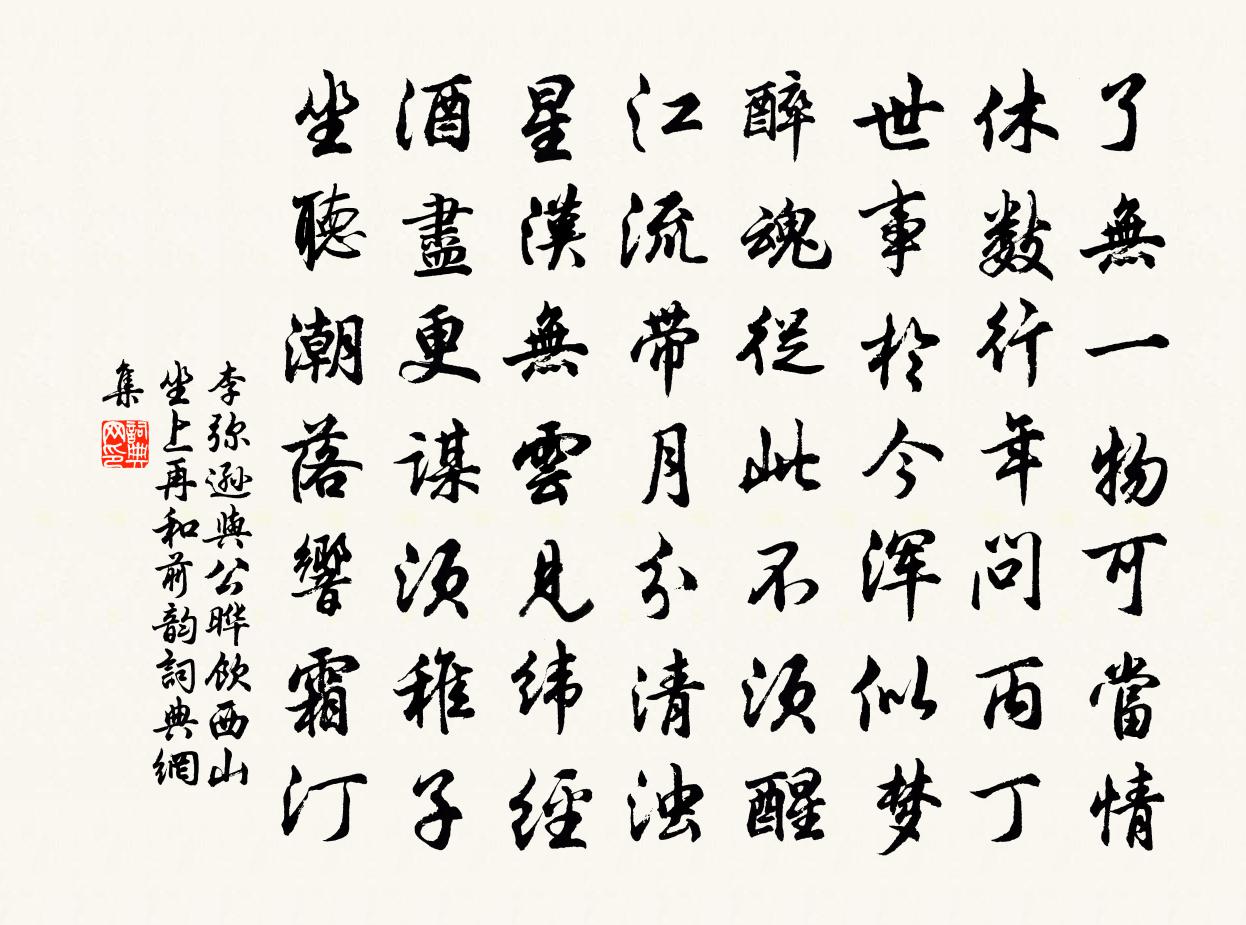 了無一物可當情
休數行年問丙丁
世事於今渾似梦
醉魂從此不須醒
江流帶月分清浊
星漢無雲見緯經
酒盡更謀須稚子
坐聽潮落響霜汀
李弥遜與公曄飲西山
坐上再和前韵詞典網
集
詞典
网印